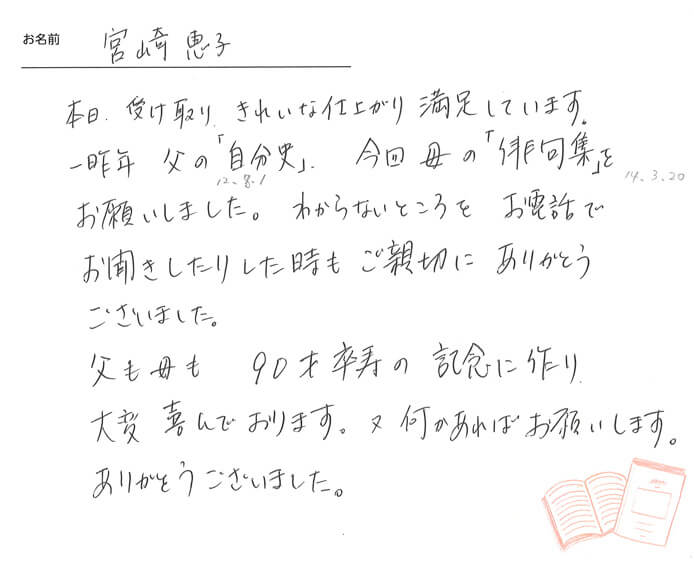 お名前 宮崎 恵子
本日、受け取り、きれいな仕上がり 満足しています。
一昨年 父の「自分史」、 今回 母の「俳句集」を
12.8.1 14.3.20
お願いしました。 わからないところを お電話で
お聞きしたりした時も ご親切に ありがとう
ございました。
父も母も 90才卒寿の 記念に作り
大変 喜んで おります。又 何かあれば お願いします。
ありがとうございました。